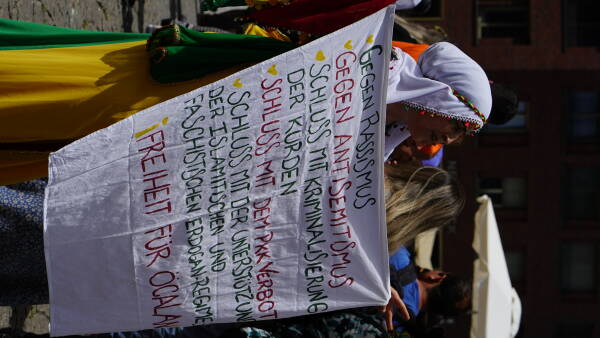 GEGEN RASSISMUS
GEGEN ANTISEMITISMUS
SCHLUSS MIT KRIMINALISIERUNG
DER KURDEN
SCHLUSS MIT DEM PKK VERBOT
SCHLUSS MIT DER UNTERSTÜTZUN
DER ISLAMISCHEN UND
FASCHISTISCHEN ERDOGAN REGIME
FREIHEIT FÜR ÖCALAN